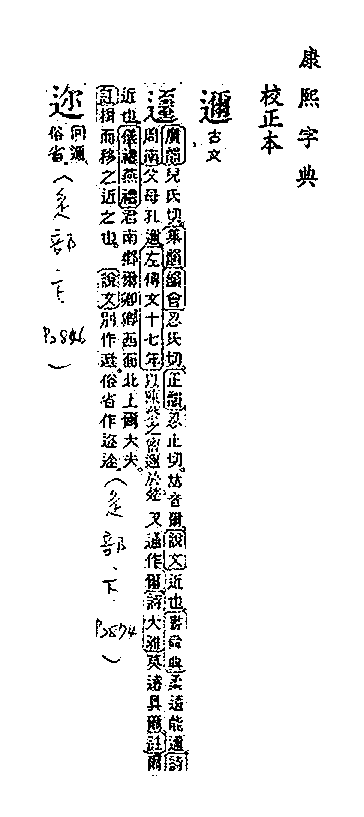 康熙字典
校正本
邇
古文
廣韻兒氏切集韻韻會忍氏切正韻忍止切𠀤音爾說文近也書舜典柔遠能邇詩
周南父母孔邇左傳文十七年以陳蔡之密邇於楚又通作爾詩大雅莫遠具爾註爾
近也儀禮燕禮君南鄉爾卿卿西面北上爾大夫
註揖而移之近之也說文別作迩俗省作
(辵部、下 P2874)
迩
同邇
俗省。(辵部、下 P2846)